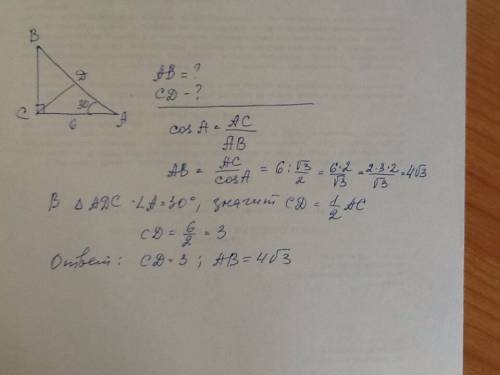 B
D
C
30
A
6
AB = ?
CD - ?
cos A = AC/AB
AB = AC/cosA = 6 : √3/2 = 6·2/√3 = 2·3·2/√3 = 4√3
В △ ADC ∠A = 30°, значит CD = 1/2 AC
CD = 6/2 = 3
Ответ: CD = 3 ; AB = 4√3